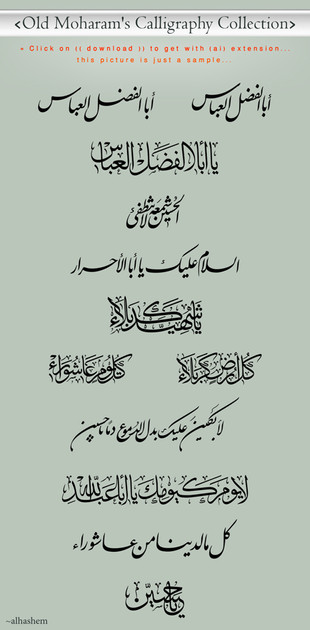 <Old Moharam's Calligraphy Collection>
* Click on (( download )) to get with (ai) extension...
this picture is just a sample...
أبا الفضل العباس أبا الفضل العباس
يا أبا الفضل العباس
الحسين شمعة لا تنطفئ
السلام عليك يا أبا الأحرار
يا شهيد كربلاء
كل أرض كربلاء كل يوم عاشوراء
لأبكين عليك بدل الدموع دما يا حسين
لا يوم كيومك يا أبا عبد الله
كل ما لدينا من عاشوراء
يا حسين
~alhashem